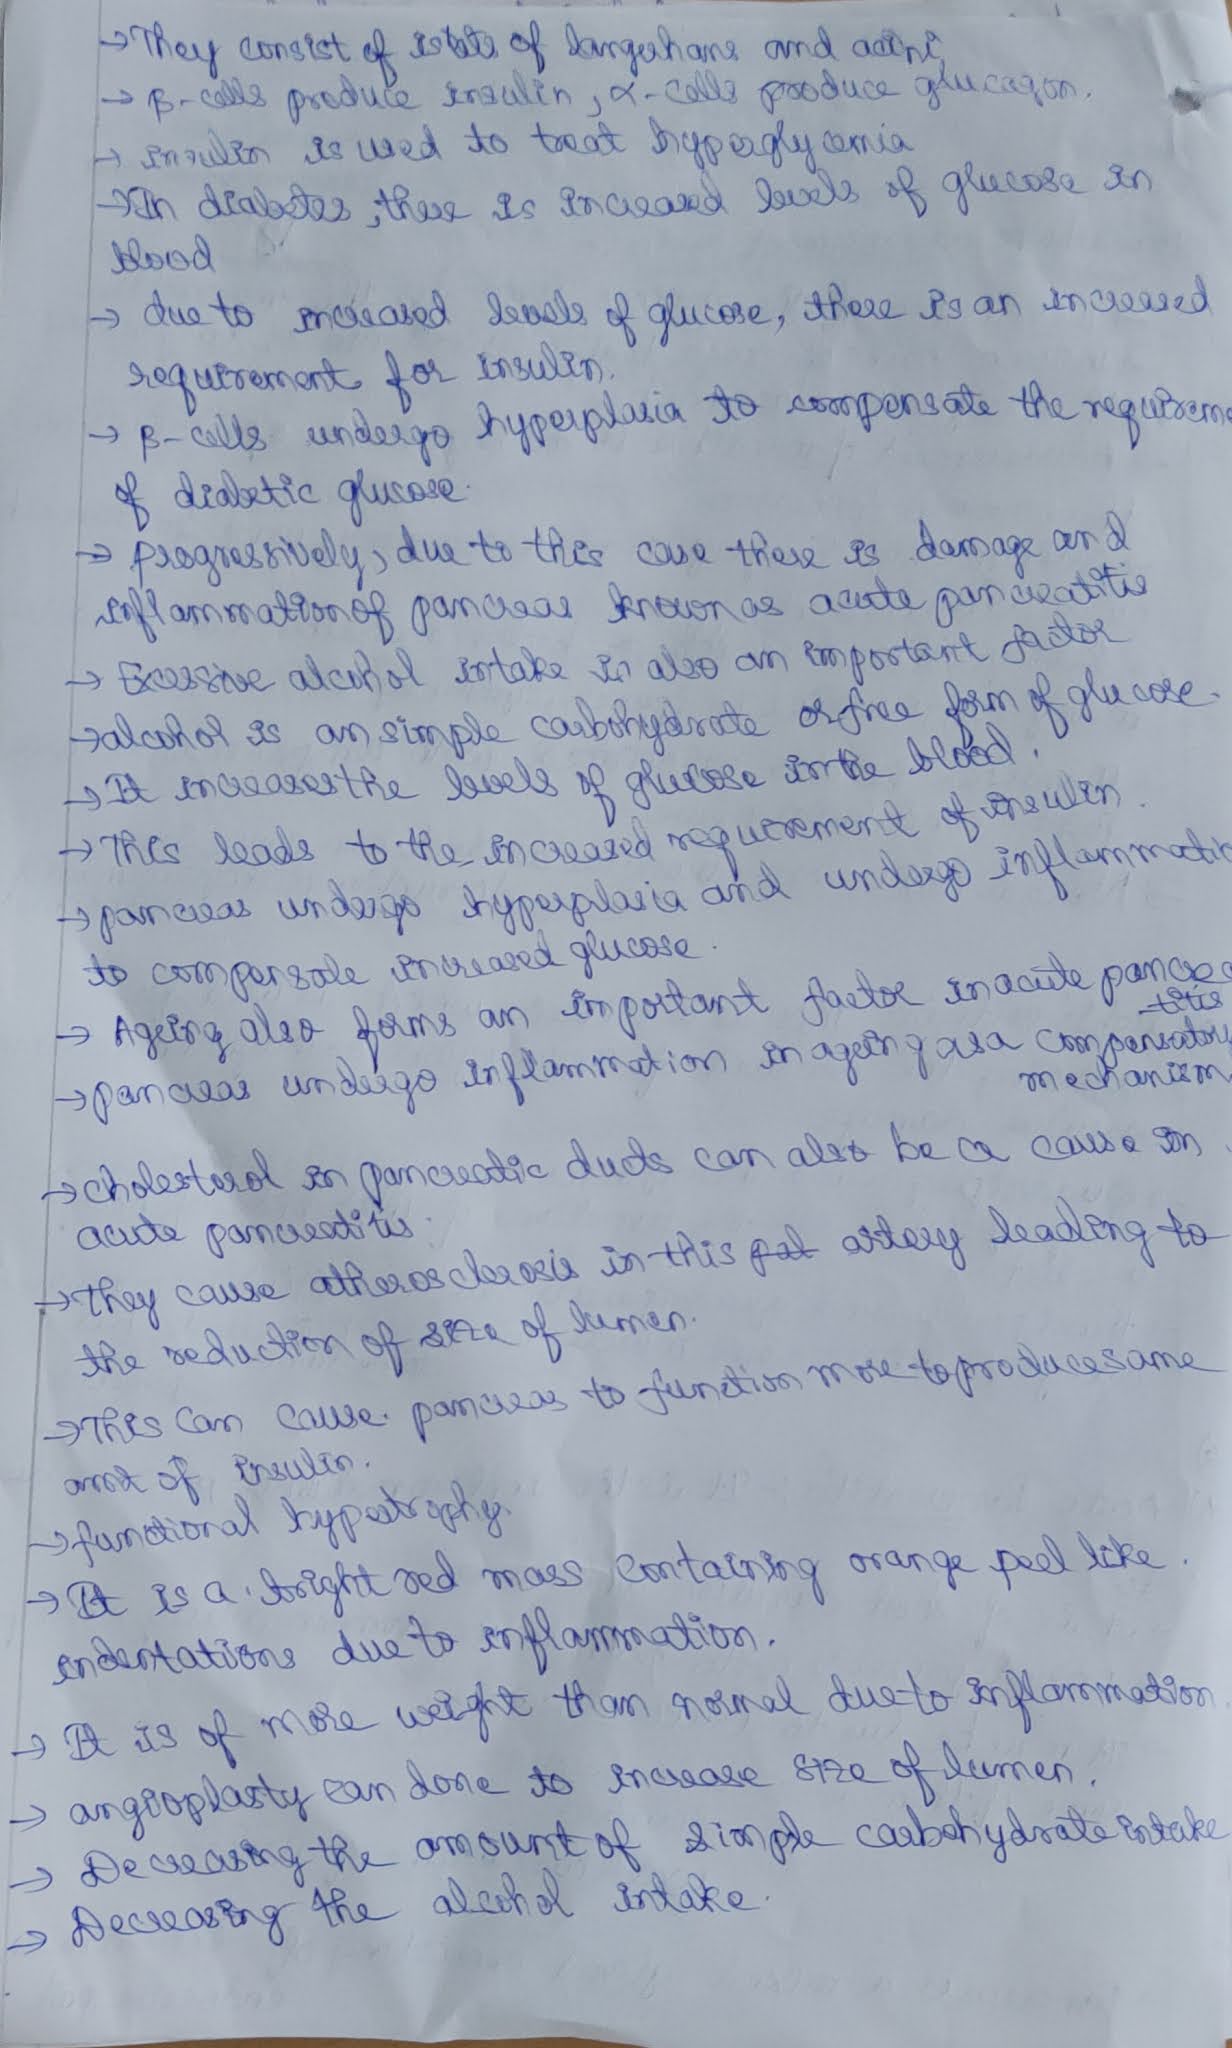 → They consist of islets of langerhans and acini
→ β-cells produce insulin, α-cells produce glucagon.
→ insulin is used to treat hyperglycemia
→ In diabetes, there is increased levels of glucose in
blood
→ due to increased levels of glucose, there is an increased
requirement for insulin.
→ β-cells undergo hyperplasia to compensate the requirem
of diabetic glucose.
→ progressively, due to this case there is damage and
inflammation of pancreas known as acute pancreatitis
→ Excessive alcohol intake is also an important factor
→ alcohol is an simple carbohydrate or free form of glucose.
→ It increases the levels of glucose in the blood.
→ This leads to the increased requirement of insulin.
→ pancreas undergo hyperplasia and undergo inflammatio
to compensate increased glucose.
→ Ageing also forms an important factor in acute pancrea
-titis
→ pancreas undergo inflammation in ageing as a compensatory
mechanism
→ cholesterol in pancreatic ducts can also be a cause in
acute pancreatitis.
→ they cause atherosclerosis in this artery leading to
the reduction of size of lumen.
→ This can cause pancreas to function more to produce same
amt of insulin.
→ functional hypertrophy.
→ It is a bright red mass containing orange peel like.
indentations due to inflammation.
→ It is of more weight than normal due to inflammation
→ angioplasty can done to increase size of lumen.
→ Decreasing the amount of simple carbohydrate intake
→ Decreasing the alcohol intake.